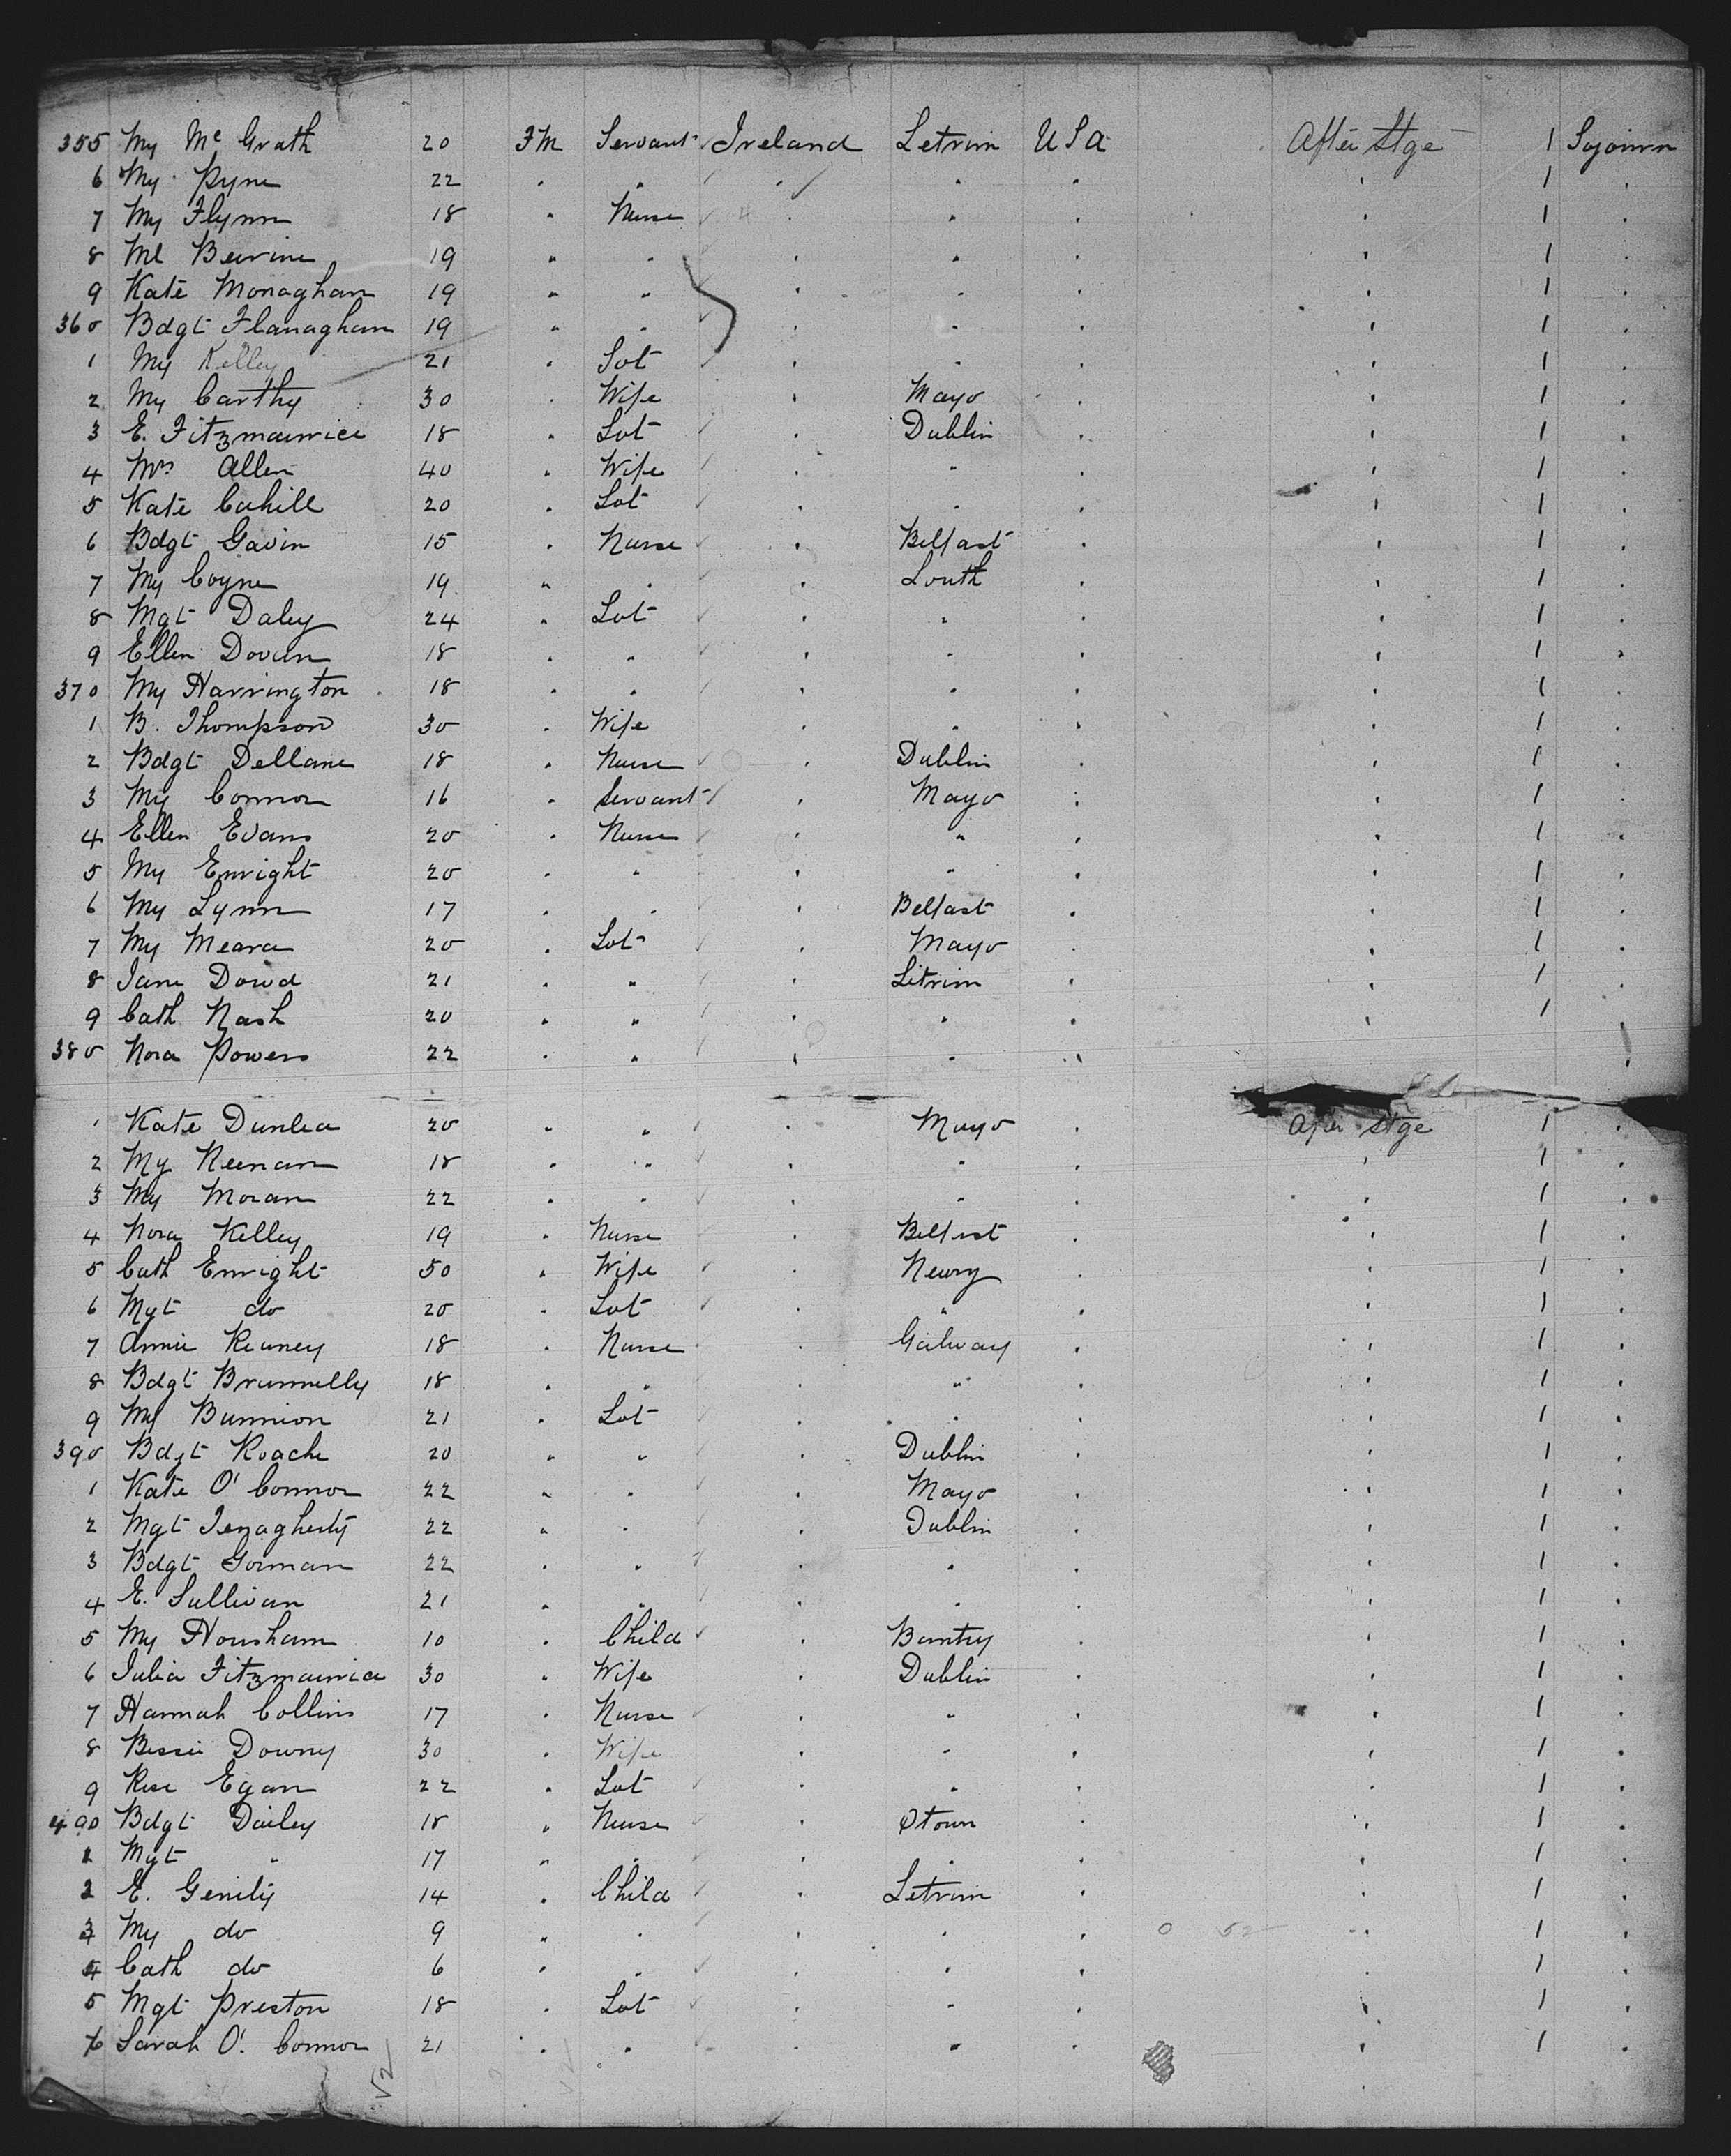 355 My McGrath 20 FM Servant Ireland Letrim USA After Stge 1 Sojourn
6 My Pyne 22 " " " " " " 1 "
7 My Flynn 18 " Nurse " " " " 1 "
8 Ml Beirine 19 " " " " " " 1 "
9 Kate Monaghan 19 " " " " " " 1 "
360 Bdgt Flanaghan 19 " " " " " " 1 "
1 My Kelley 21 " Svt " " " " 1 "
2 My Carthy 30 " Wife " Mayo " " 1 "
3 E. Fitzmaurice 18 " Svt " Dublin " " 1 "
4 Mrs Allen 40 " Wife " " " " 1 "
5 Kate Cahill 20 " Svt " " " " 1 "
6 Bdgt Gavin 15 " Nurse " Belfast " " 1 "
7 My Coyne 19 " " " Louth " " 1 "
8 Mgt Daley 24 " Svt " " " " 1 "
9 Ellen Dovan 18 " " " " " " 1 "
370 My Harrington 18 " " " " " " 1 "
1 B. Thompson 30 " Wife " " " " 1 "
2 Bdgt Dellane 18 " Nurse " Dublin " " 1 "
3 My Connor 16 " Servant " Mayo " " 1 "
4 Ellen Evans 20 " Nurse " " " " 1 "
5 My Enright 20 " " " " " " 1 "
6 My Lynn 17 " " " Belfast " " 1 "
7 My Meara 20 " Svt " Mayo " " 1 "
8 Jane Dowd 21 " " " Letrim " " 1 "
9 Cath Nash 20 " " " " " " 1 "
380 Nora Powers 22 " " " " " "
1 Kate Dunlea 20 " " " Mayo " After Stge 1 "
2 My Keenan 18 " " " " " " 1 "
3 My Moran 22 " " " " " " 1 "
4 Nora Kelley 19 " Nurse " Belfast " " 1 "
5 Cath Enright 50 " Wife " Newry " " 1 "
6 Mgt do 20 " Svt " " " " 1 "
7 Annie Keaney 18 " Nurse " Galway " " 1 "
8 Bdgt Brunnelly 18 " " " " " " 1 "
9 My Bunnion 21 " Svt " " " " 1 "
390 Bdgt Roache 20 " " " Dublin " " 1 "
1 Kate O'Connor 22 " " " Mayo " " 1 "
2 Mgt 22 " " " Dublin " " 1 "
3 Bdgt Gorman 22 " " " " " " 1 "
4 E. Sullivan 21 " " " " " " 1 "
5 My Housham 10 " Child " Bantry " " 1 "
6 Julia Fitzmaurice 30 " Wife " Dublin " " 1 "
7 Hannah Collins 17 " Nurse " " " " 1 "
8 Bessie Downy 30 " Wife " " " " 1 "
9 Rose Egan 22 " Svt " " " " 1 "
400 Bdgt Dailey 18 " Nurse " Qtown " " 1 "
1 Mgt " 17 " " " " " " 1 "
2 E. 14 " Child " Letrim " " 1 "
3 My do 9 " " " " " " 1 "
4 Cath do 6 " " " " " " 1 "
5 Mgt Preston 18 " Svt " " " " 1 "
6 Sarah O'Connor 21 " " " " " " 1 "